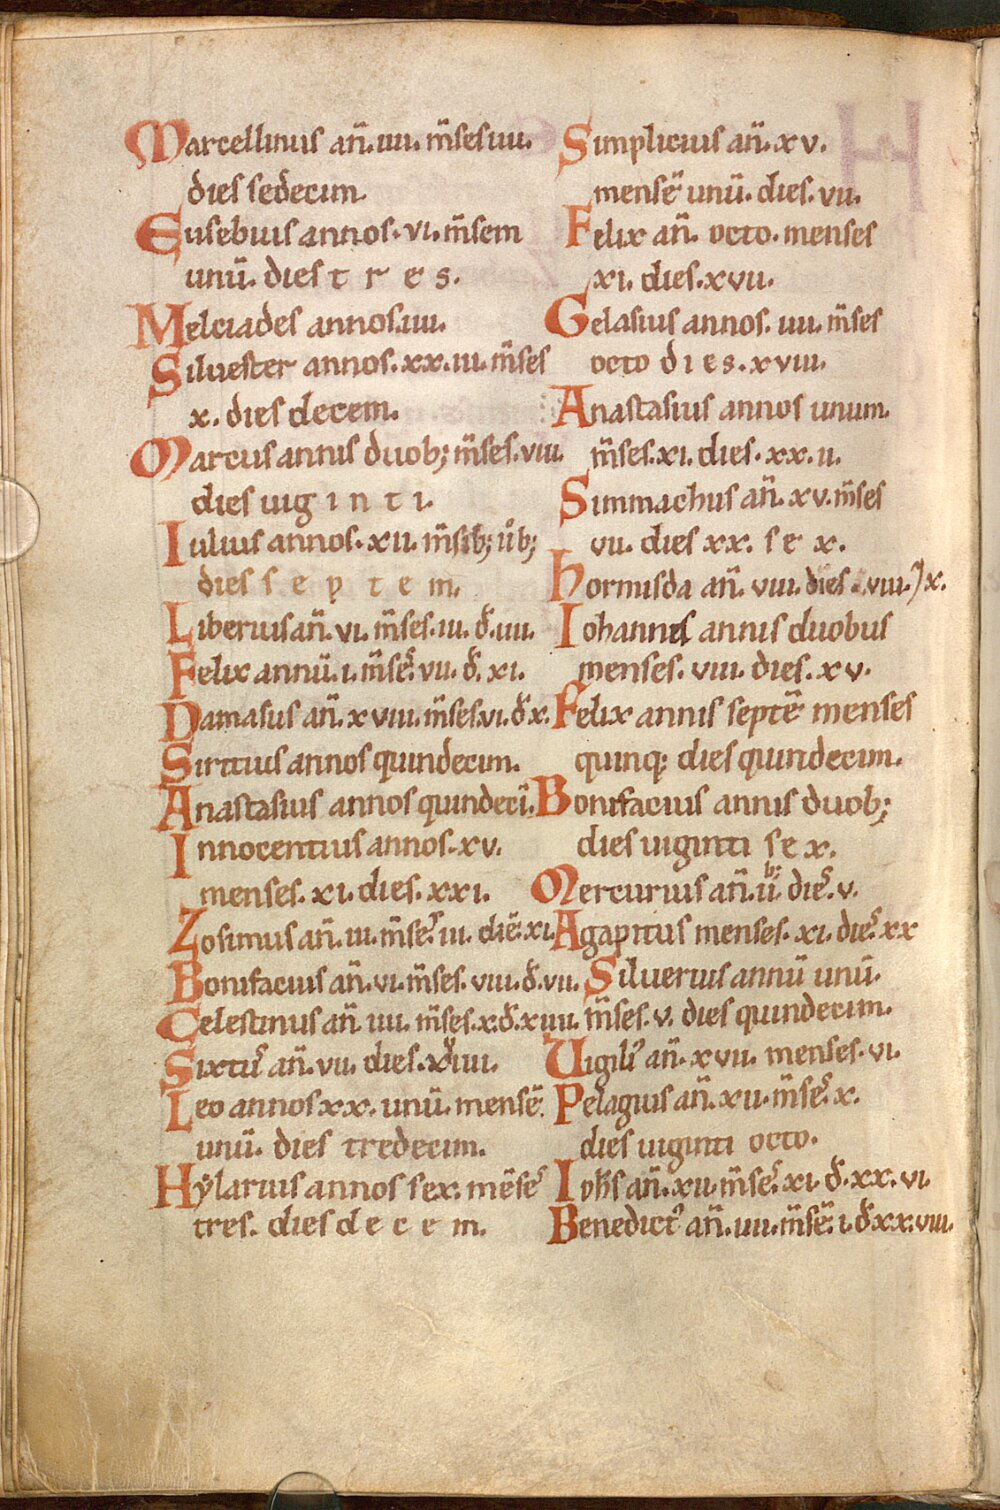 Marcellinus an̄. iiii. m̄ses iiii.
dies sedecim.
Eusebius annos. vi. m̄sem
unū. dies t r e s.
Melciades annos. iiii.
Siluester annos. xx. iii. m̄ses
x. dies decem.
Marcus annis duob; m̄ses. viii.
dies uig i n t i.
Iulius annos. xii. m̄sib; iib;
dies s e p t e m.
Liberius an̄. vi. m̄ses. iii. d̄. iiii.
Felix annū. i. m̄sē. vii. d̄. xi.
Damasus an̄. xviii. m̄ses. vi. d̄ x.
Siricius annos quindecim.
Anastasius annos quindecī.
Innocentius annos. xv.
menses. xi. dies. xxi.
Zosimus an̄. iii. m̄se᷒. iii. die᷒. xi.
Bonifacius an̄. vi. m̄ses. viii. d̄. vii.
Celestinus an̄. iiii. m̄ses. x. d̄. xuii.
Sixtꝰ an̄. vii. dies. xviiii.
Leo annos xx. unū. mensē.
unū. dies tredecim.
Hylarius annos sex. mēse᷒
tres. dies d e c e m.
Simplicius an̄. xv.
mensē unū. dies. vii.
Felix an̄. octo. menses
xi. dies. xvii.
Gelasius annos. iiii. m̄ses
octo d i e s. xviii.
Anastasius annos unum.
m̄ses. xi. dies. xx. ii.
Simmachus an̄. xv. m̄ses
vii. dies xx. s e x.
Hormisda an̄. viii. dies. viii. x.
Iohannes annis duobus
menses. viii. dies. xv.
Felix annis septē menses
quinq; dies quindecim.
Bonifacius annis duob;
dies uiginti s e x.
Mercurius an̄. iib; die᷒. v.
Agapitus menses. xi. die᷒ xx
Siluerius annū unū.
m̄ses. v. dies quindecim.
Uigiliꝰ an̄. xvii. menses. vi.
Pelagius an̄. xii. m̄se᷒. x.
dies uiginti octo.
Ioh̄s an̄. xii. m̄se᷒. xi. d̄. xx. vi.
Benedictꝰ an̄. iiii. m̄sē. i. d̄ xx. viii.